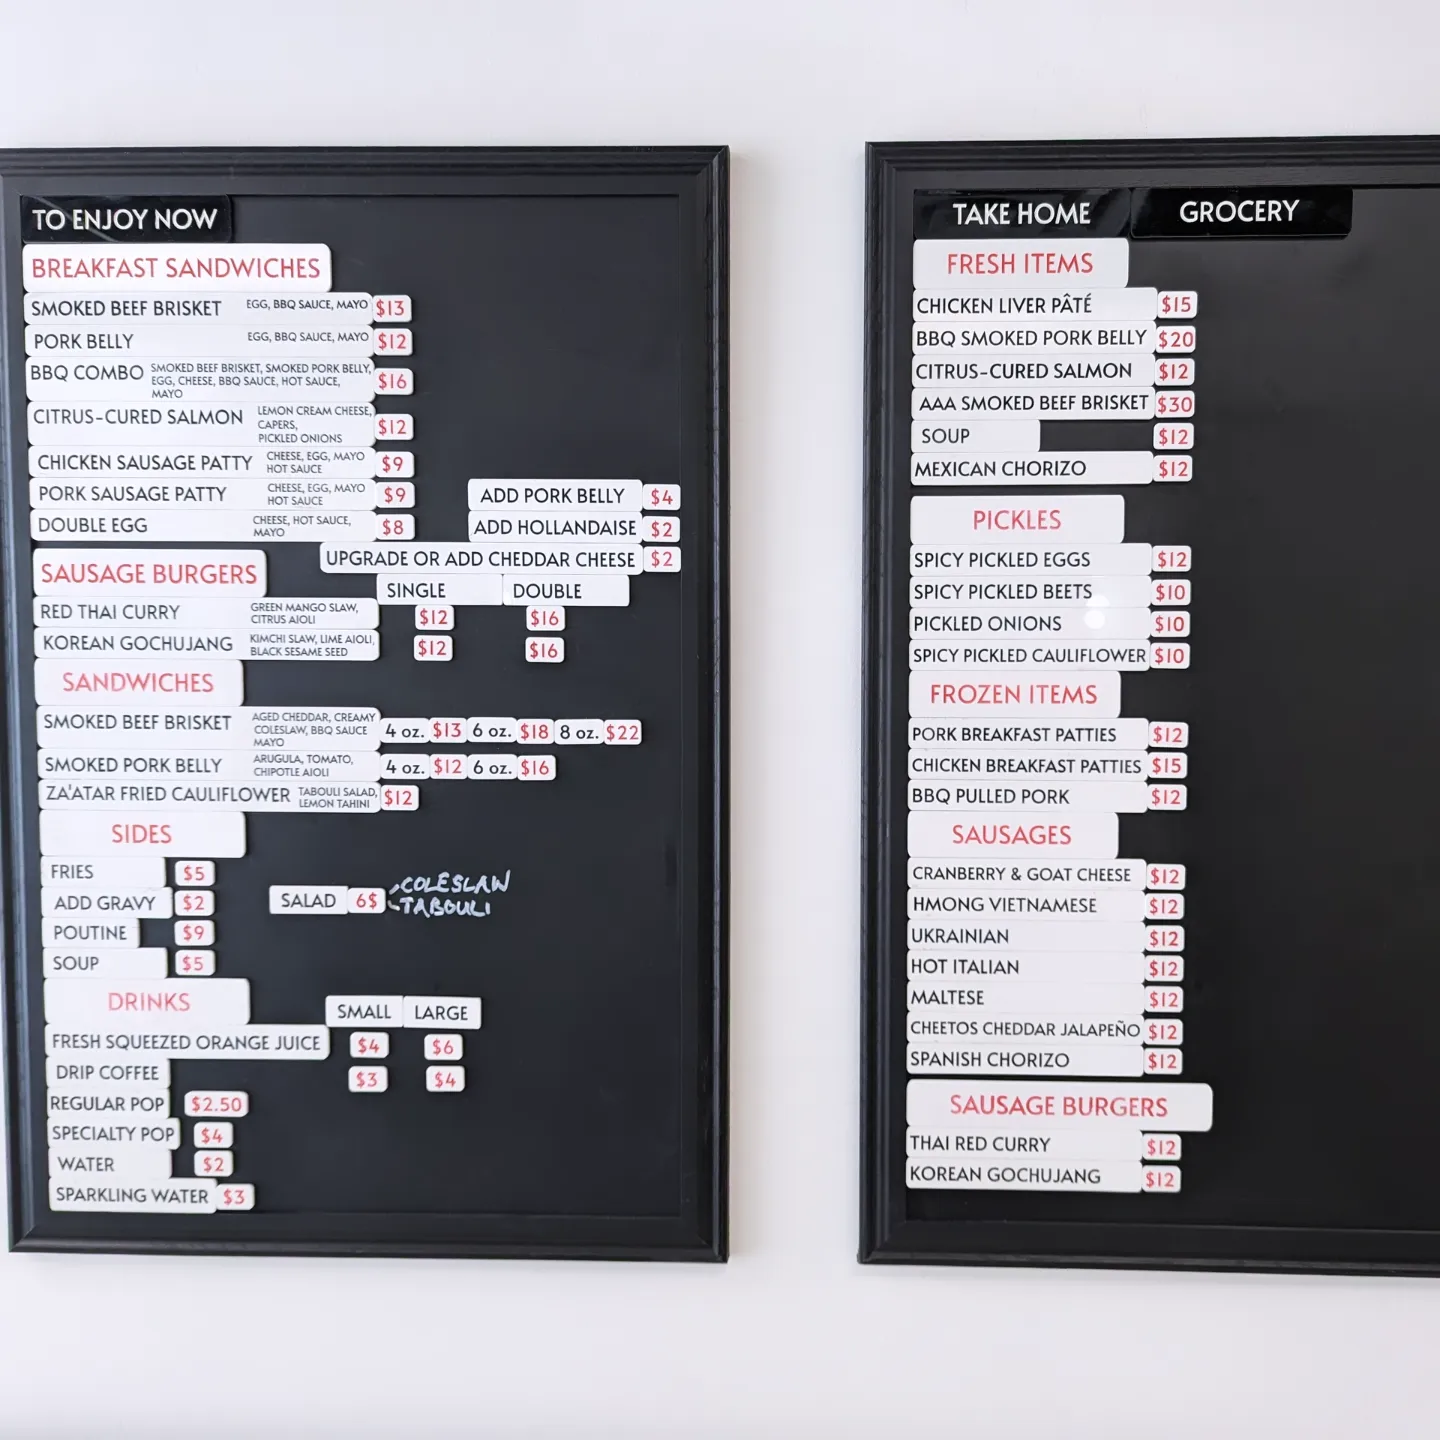 TO ENJOY NOW
BREAKFAST SANDWICHES
SMOKED BEEF BRISKET EGG, BBQ SAUCE, MAYO $13
PORK BELLY EGG, BBQ SAUCE, MAYO $12
BBQ COMBO SMOKED BEEF BRISKET, SMOKED PORK BELLY, $16
EGG, CHEESE, BBQ SAUCE, HOT SAUCE,
MAYO
CITRUS-CURED SALMON LEMON CREAM CHEESE, $12
CAPERS,
PICKLED ONIONS
CHICKEN SAUSAGE PATTY CHEESE, EGG, MAYO $9
HOT SAUCE
PORK SAUSAGE PATTY CHEESE, EGG, MAYO $9
HOT SAUCE
DOUBLE EGG CHEESE, HOT SAUCE, $8
MAYO
ADD PORK BELLY $4
ADD HOLLANDAISE $2
UPGRADE OR ADD CHEDDAR CHEESE $2
SAUSAGE BURGERS SINGLE DOUBLE
RED THAI CURRY GREEN MANGO SLAW, $12 $16
CITRUS AIOLI
KOREAN GOCHUJANG KIMCHI SLAW, LIME AIOLI, $12 $16
BLACK SESAME SEED
SANDWICHES
SMOKED BEEF BRISKET AGED CHEDDAR, CREAMY 4 oz. $13 6 oz. $18 8 oz. $22
COLESLAW, BBQ SAUCE
MAYO
SMOKED PORK BELLY ARUGULA, TOMATO, 4 oz. $12 6 oz. $16
CHIPOTLE AIOLI
ZA'ATAR FRIED CAULIFLOWER TABOULI SALAD, $12
LEMON TAHINI
SIDES
FRIES $5
ADD GRAVY $2
POUTINE $9
SOUP $5
SALAD 6$ COLESLAW
TABOULI
DRINKS SMALL LARGE
FRESH SQUEEZED ORANGE JUICE $4 $6
DRIP COFFEE $3 $4
REGULAR POP $2.50
SPECIALTY POP $4
WATER $2
SPARKLING WATER $3
TAKE HOME GROCERY
FRESH ITEMS
CHICKEN LIVER PÂTÉ $15
BBQ SMOKED PORK BELLY $20
CITRUS-CURED SALMON $12
AAA SMOKED BEEF BRISKET $30
SOUP $12
MEXICAN CHORIZO $12
PICKLES
SPICY PICKLED EGGS $12
SPICY PICKLED BEETS $10
PICKLED ONIONS $10
SPICY PICKLED CAULIFLOWER $10
FROZEN ITEMS
PORK BREAKFAST PATTIES $12
CHICKEN BREAKFAST PATTIES $15
BBQ PULLED PORK $12
SAUSAGES
CRANBERRY & GOAT CHEESE $12
HMONG VIETNAMESE $12
UKRAINIAN $12
HOT ITALIAN $12
MALTESE $12
CHEETOS CHEDDAR JALAPEÑO $12
SPANISH CHORIZO $12
SAUSAGE BURGERS
THAI RED CURRY $12
KOREAN GOCHUJANG $12